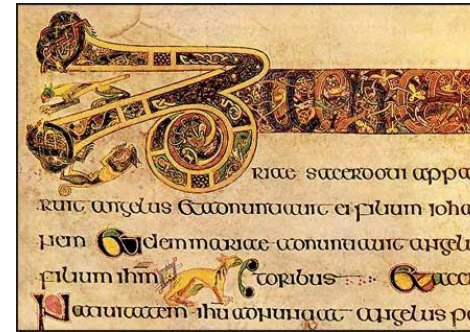 Z
riae sacerdoti appa
ruit angelus & adnuntiauit ei filium ioha
nem & idem mariae adnuntiauit angel
filium ihm toribus
Natiuitatem ihu adnuntiat angelus